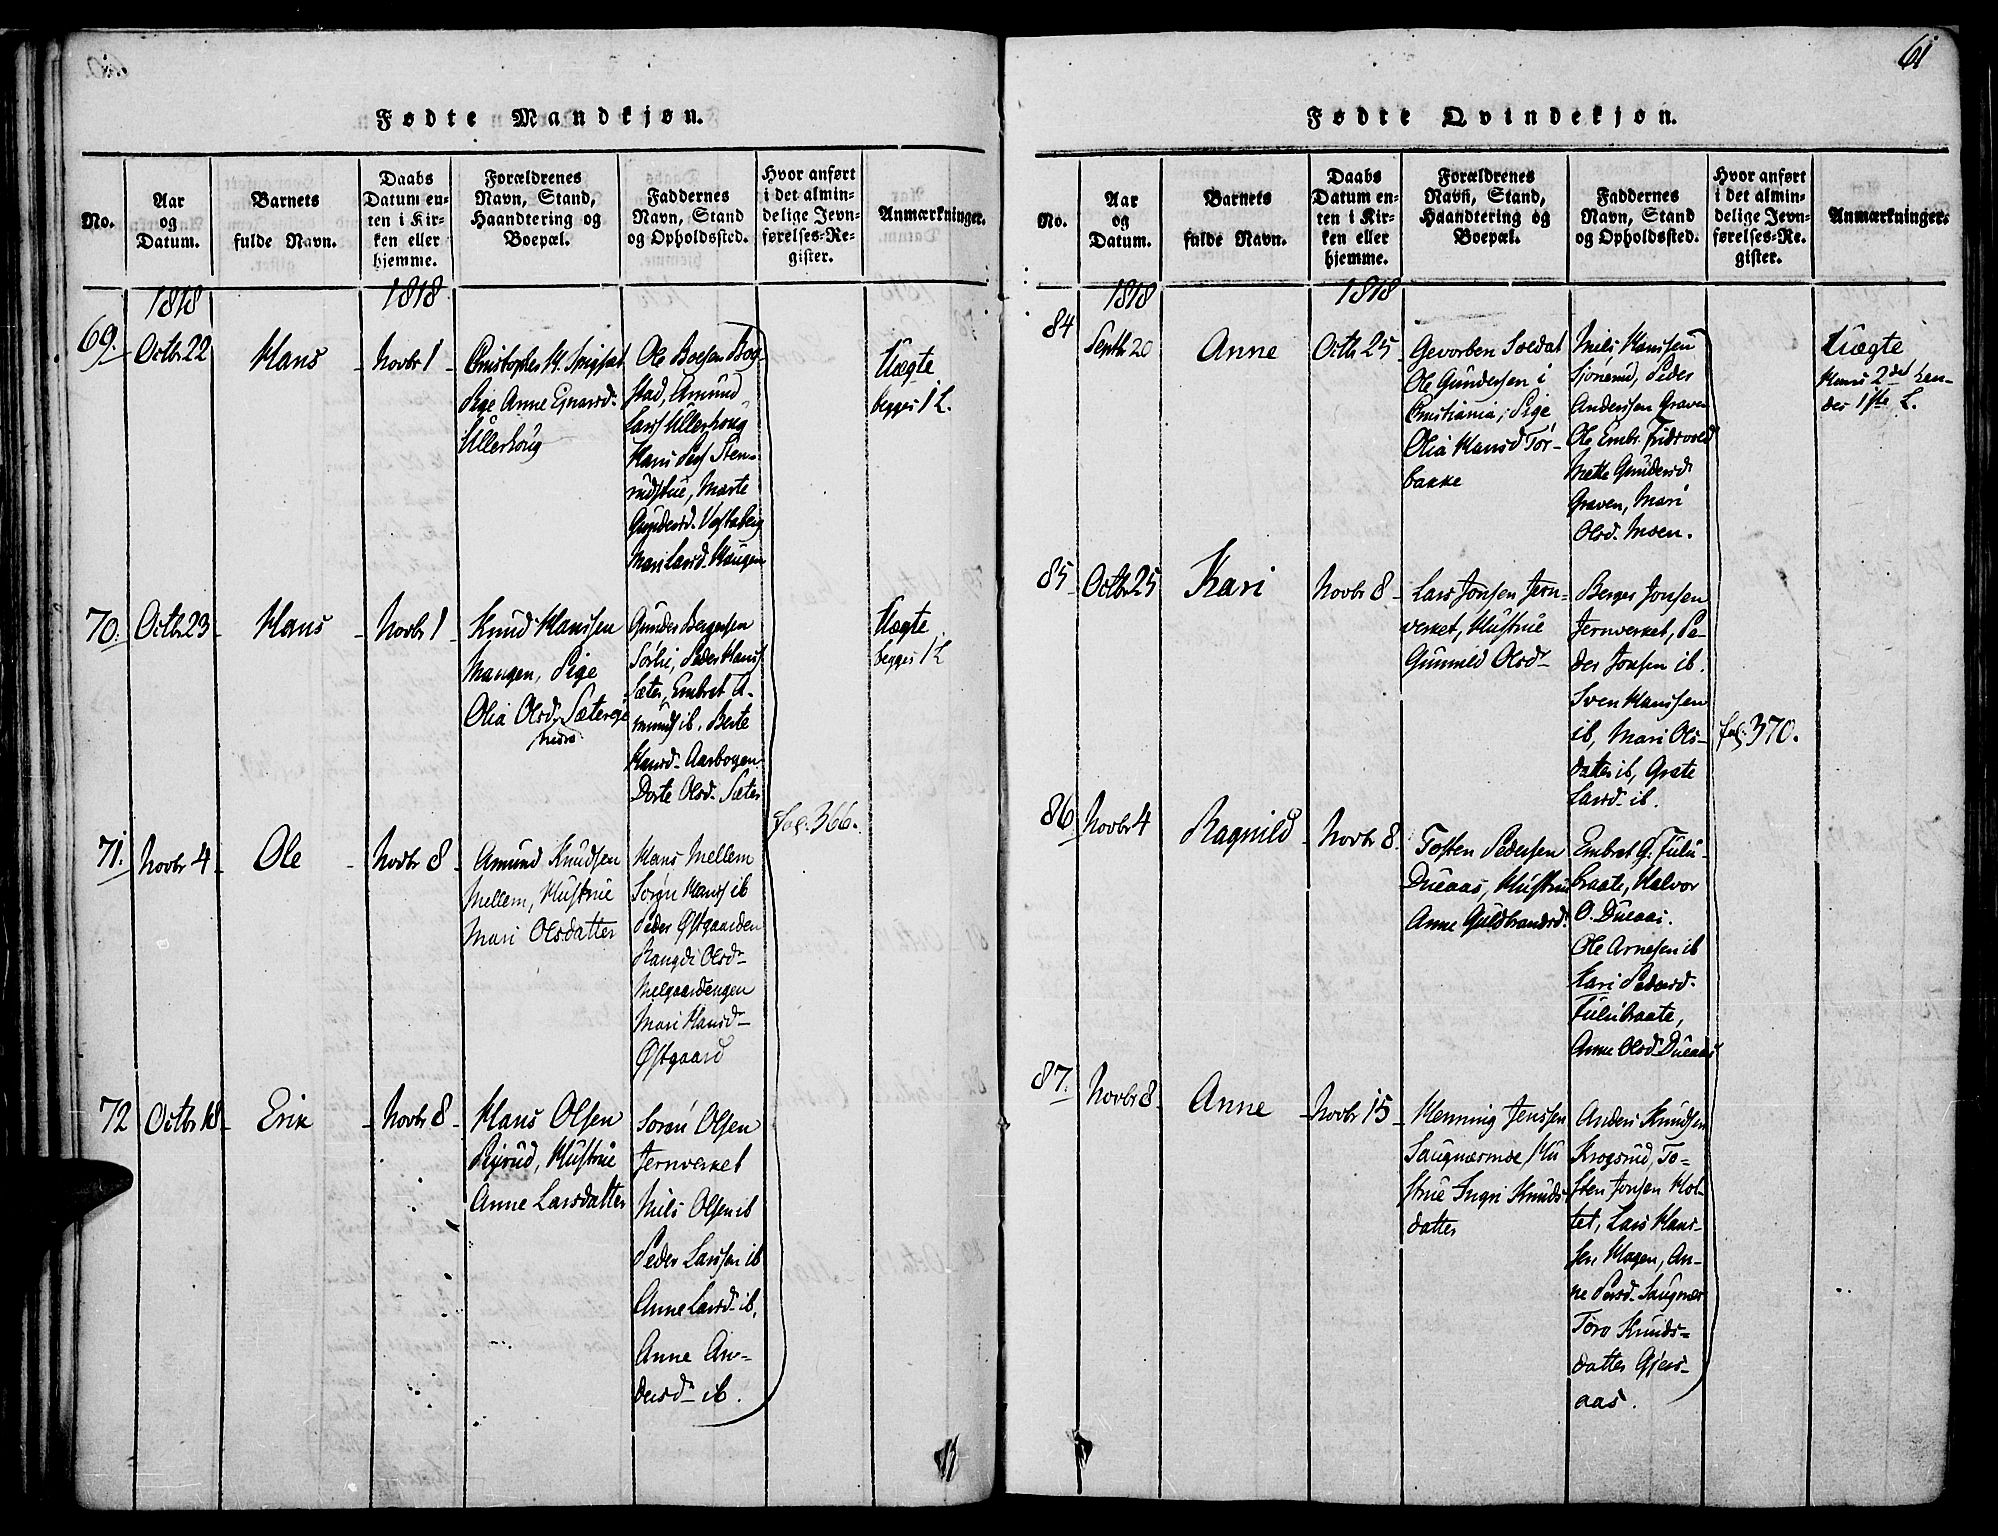 61
Fødte Mandkjøn.
No.
Aar
og
Datum.
Barnets
fulde Navn.
Daabs
Datum en-
ten i Kir-
ken eller
hjemme.
Forældrenes
Navn, Stand,
Haandtering og
Boepæl.
Faddernes
Navn, Stand
og Opholdssted.
Hvor anført
i det almin-
delige Jevn-
førelses-Re-
gister.
Anmærkninger.
1818
1818
69.
Octbr 22
Hans
Novbr 1
Christopher H.
Pige Anne Ejnarsd.
Ullerhoug
Ole Boesen Bog-
stad, Amund
Larss Ullerhoug
Hans Pers Sten-
rudstue, Marte
Gundersd. Vestaberg
Mari Larsd. Haugen
Uægte
begges 1 L.
70.
Octbr 23
Hans
Novbr 1
Knud Hanssen
Mangen, Pige
Olia Olsd. Sætereje
nedre
Gunder Bergersen
Sørlie, Peder Hanss
Sæter, Embret A-
munds ib. Berte
Hansd. Aarbogen
Dorte Olsd. Sæter
Uægte
begges 1 L
fol. 366.
71.
Novbr 4
Ole
Novbr 8
Amund Knudsen
Mellem, Hustrue
Mari Olsdatter
Hans Mellem
Sørgn Hanss ib
Peder Østgaarden
Rangdi Olsdr
Melgaardengen
Mari Hansd
Østgaard
72
Octbr 18
Erik
Novbr 8
Hans Olsen
Hustrue
Anne Larsdatter
Søren Olsen
Jernverket
Nils Olsen ib
Peder Larssen ib
Anne Larsd. ib.
Anne An-
dersdr ib.
Fødte Qvindekjøn.
No.
Aar
og
Datum.
Barnets
fulde Navn.
Daabs
Datum en-
ten i Kir-
ken eller
hjemme.
Forældrenes
Navn, Stand,
Haandtering og
Boepæl.
Faddernes
Navn, Stand
og Opholdssted.
Hvor anført
i det almin-
delige Jevn-
førelses-Re-
gister.
Anmærkninger.
1818
1818
84
Septbr 20
Anne
Octbr 25
Gevorben Soldat
Ole Gundersen i
Christiania, Pige
Olia Hansd Tør-
bakke
Nils Hanssen
Sjonerud, Peder
Anderssen Graven
Ole Embr. Fridsvold
Mette Gundersd
Graven, Mari
Olsd. Moen.
Uægte
Hans 2det hen-
des 1ste L.
85
Octbr 25
Kari
Novbr 8
Lars Jonsen Jern-
verket, Hustrue
Gunnild Olsdr
Berger Jonsen
Jernverket, Pe-
der Jonsen ib.
Sven Hanssen
ib, Mari Ols-
datter ib, Grete
Larsd. ib.
fol. 370.
86
Novbr 4
Ragnild
Novbr 8.
Tosten Pedersen
Dueaas, Hustrue
Anne Guldbrandsd.
Embret G. Fulu-
braate, Halvor
O. Dueaas.
Ole Arnesen ib
Kari Pedersd.
Fulubraate,
Anne Olsd. Dueaas
87.
Novbr 8
Anne
Novbr 15
Henning Jenssen
Saugnærmoe, Hu
strue Ingri Knuds
datter
Anders Knudsen
Krogsrud, To-
sten Jonsen Hol-
tet, Lars Hans-
sen Hagen, An-
ne Persd. Saugnæs
Toro Knuds-
datter Gjers-
aas.